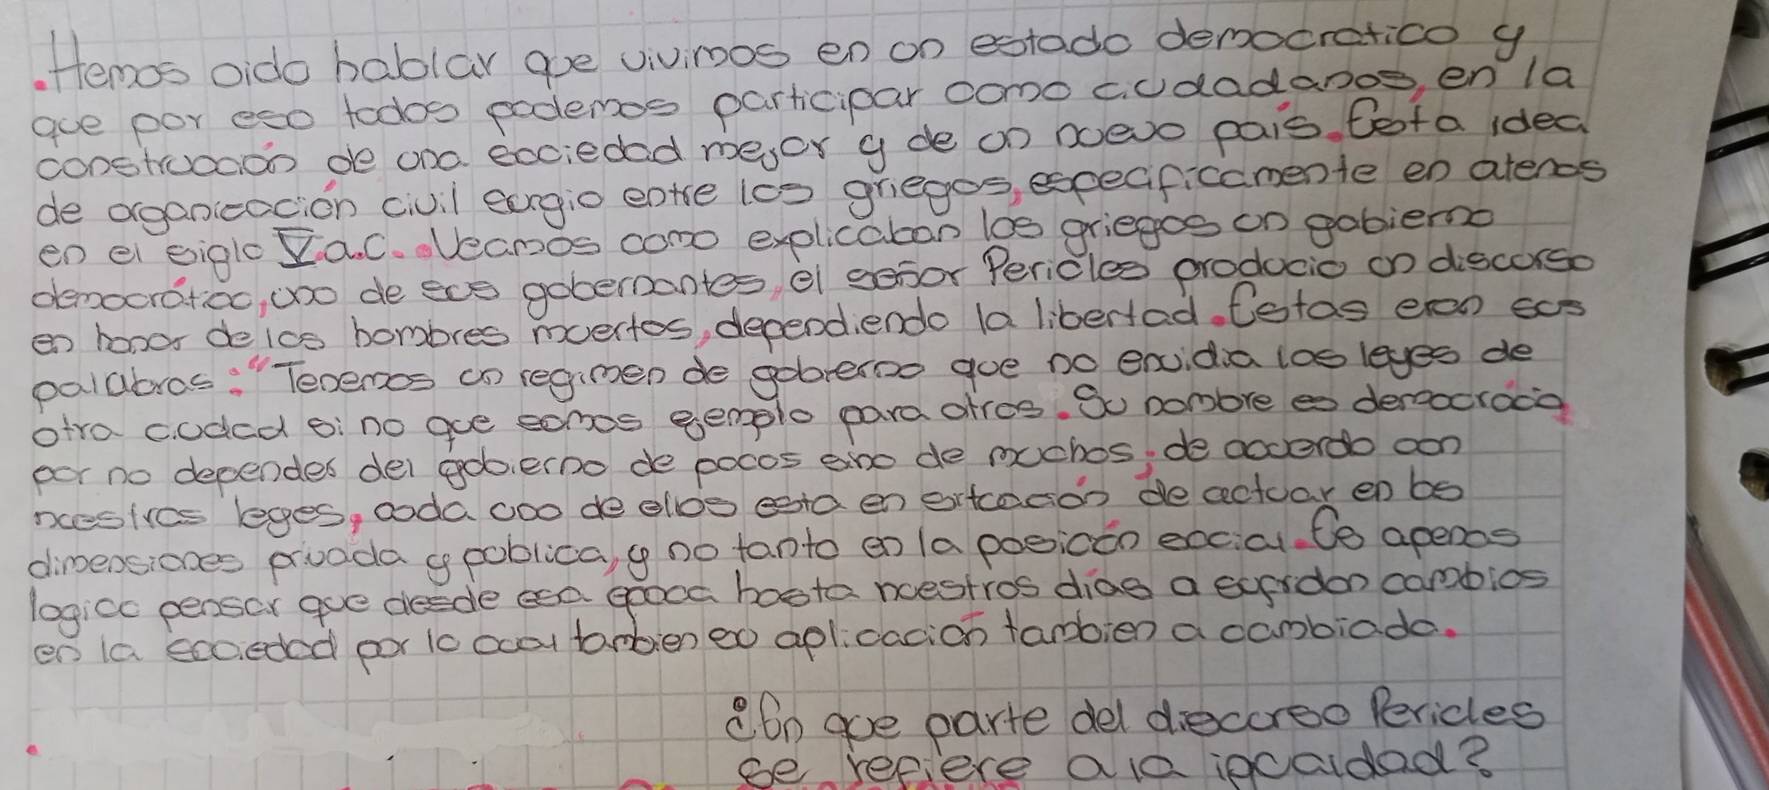 .Hemos oido hablar que vivimos en un estado democratico y
que por eso todos podemos participar como ciudadanos, en la
construcción de una sociedad mejor y de un nuevo país. Esta idea
de organización civil surgio entre los griegos, especificamente en atenas
en el siglo V.a.C. Veamos como explicaban los griegos un gobierno
democrático, uno de sus gobernantes, el señor Pericles producio un discurso
en honor de los hombres muertos, dependiendo la libertad. Estas eran sus
palabras: "Tenemos un regimen de gobierno que no envidia las leyes de
otra ciudad si no que somos ejemplo para otros. Su nombre es democrácia
por no depender del gobierno de pocos sino de muchos; de acuerdo con
nuestras leyes, cada uno de ellos esta en situación de actuar en las
dimensiones privada y publica, y no tanto en la posición social. Es apenas
logico pensar que desde esa epoca hasta nuestros días a surgidon cambios
en la sociedad por lo cual tambien su aplicación tambien a cambiado.
¿En que parte del discurso Pericles
se refiere a la igualdad?